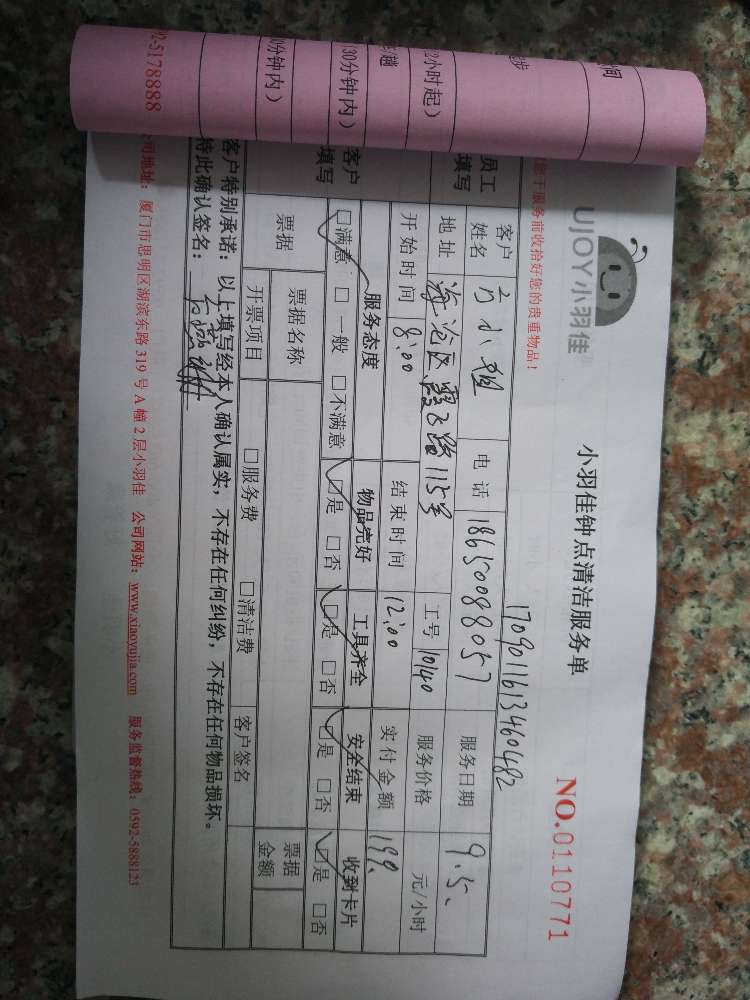 UJOY小羽佳
小羽佳钟点清洁服务单
NO.0110771
1709011613460482
于服务前收拾好您的贵重物品！
员工填写
客户姓名 小姐 电话 18650088057 服务日期 9.5、
地址 海沧区霞飞路115号 工号 10140 服务价格 元/小时
开始时间 8:00 结束时间 12:00 实付金额 199.
客户填写
服务态度 物品完好 工具齐全 安全结束 收到卡片
☑满意 □一般 □不满意 ☑是 □否 ☑是 □否 ☑是 □否 ☑是 □否
票据 票据名称 客户签名 票据金额
开票项目 □服务费 □清洁费
客户特别承诺：以上填写经本人确认属实，不存在任何纠纷，不存在任何物品损坏。
特此确认签名：
公司地址：厦门市思明区湖滨东路319号A幢2层小羽佳 公司网站：www.xiaoyujia.com 服务监督热线：0592-5888123
间
步
2小时起）
/趟
30分钟内）
0分钟内）
2-5178888